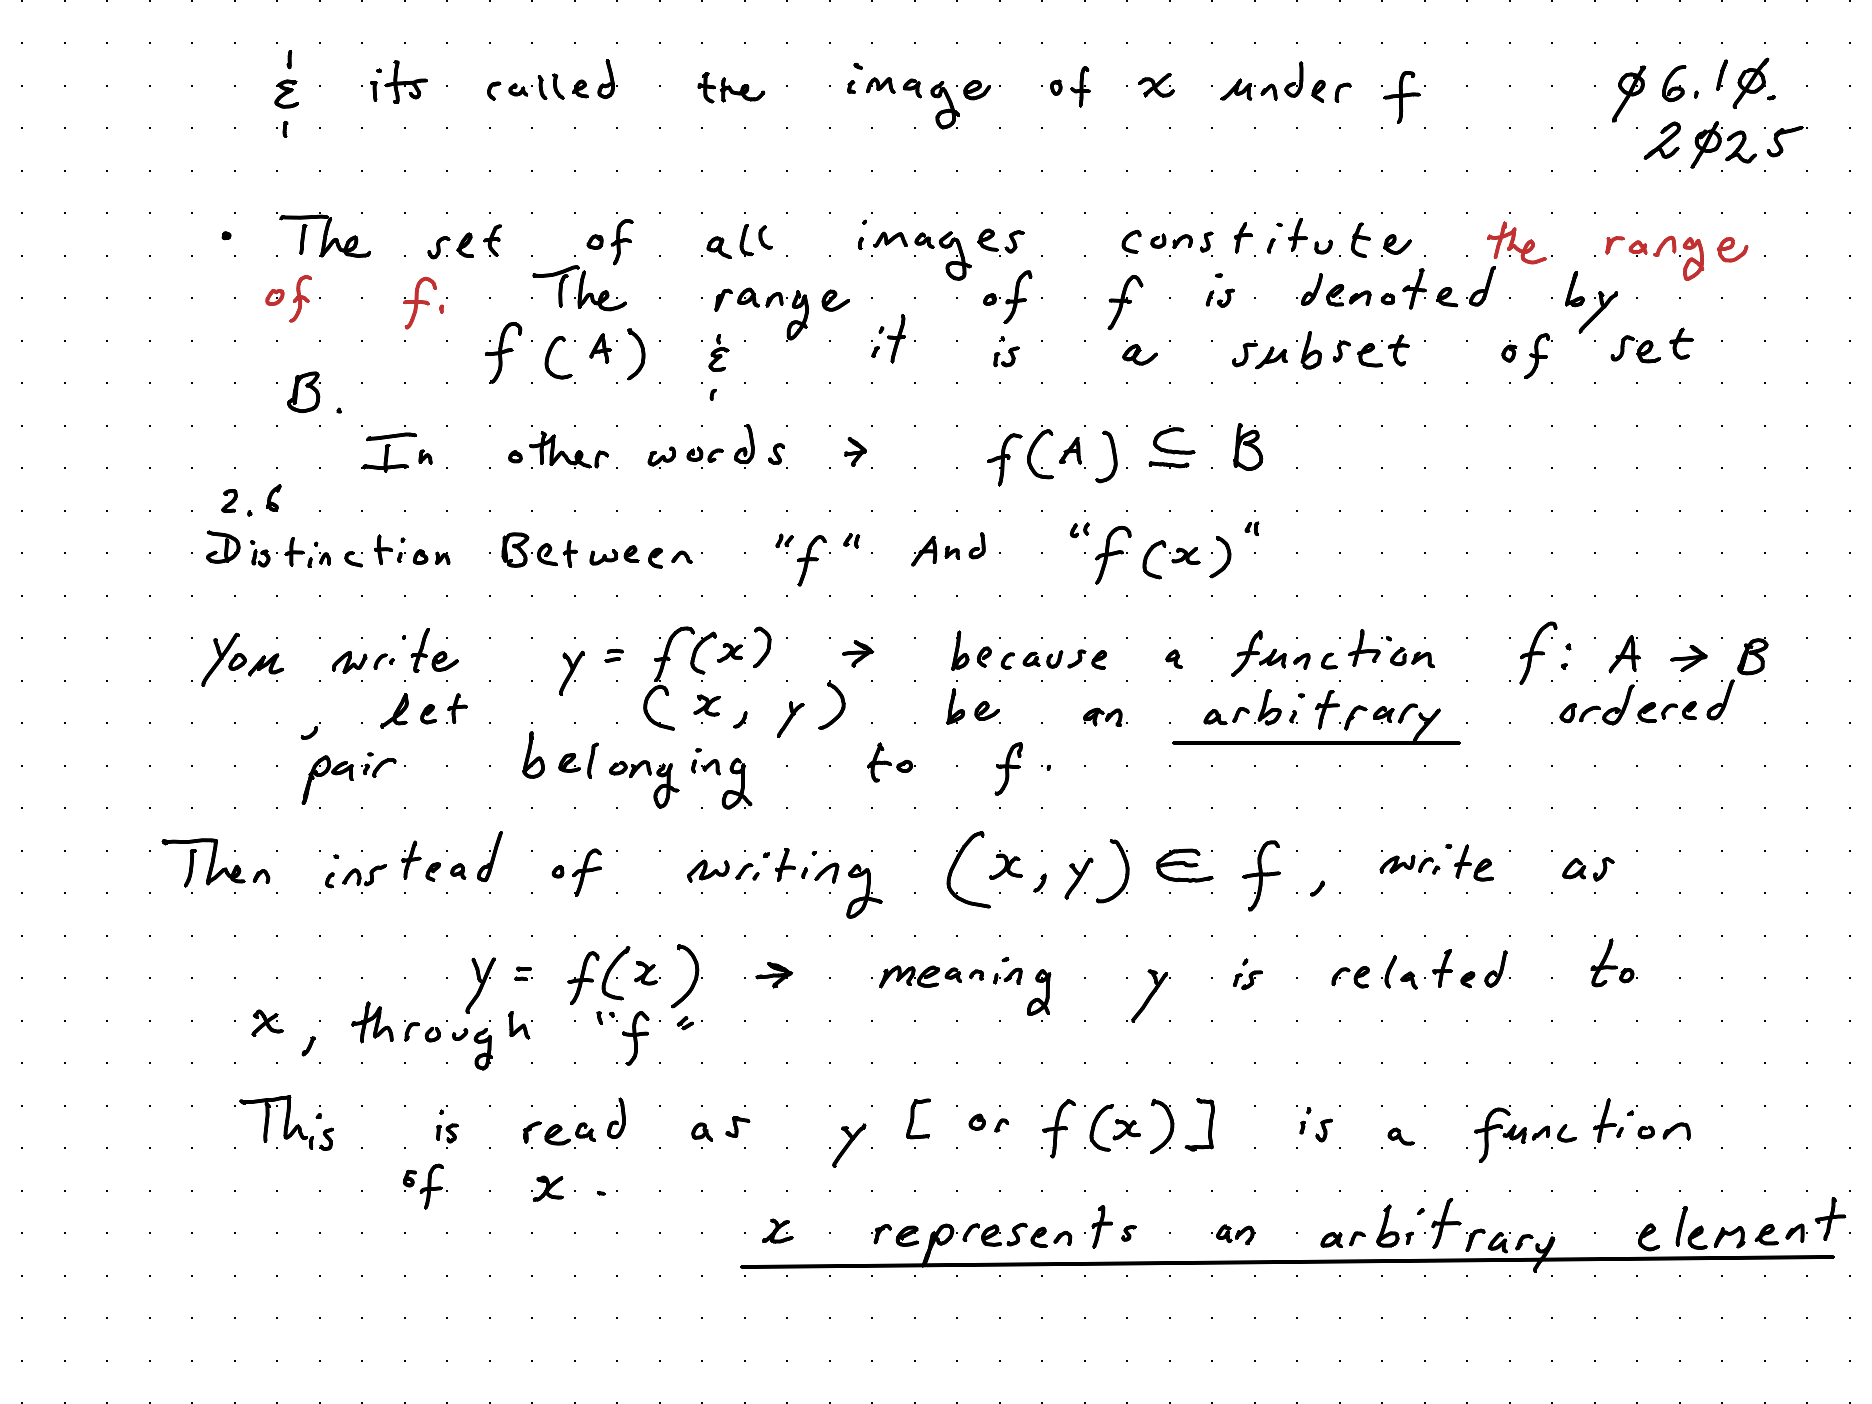 & its called the image of x under f
06.10.
2025
• The set of all images constitute the range
of f. The range of f is denoted by
f(A) & it is a subset of set
B.
In other words → f(A) ⊆ B
2.6
Distinction Between "f" And "f(x)"
You write y = f(x) → because a function f: A → B
, let (x, y) be an arbitrary ordered
pair belonging to f.
Then instead of writing (x, y) ∈ f, write as
y = f(x) → meaning y is related to
x, through "f"
This is read as y [or f(x)] is a function
of x.
x represents an arbitrary element